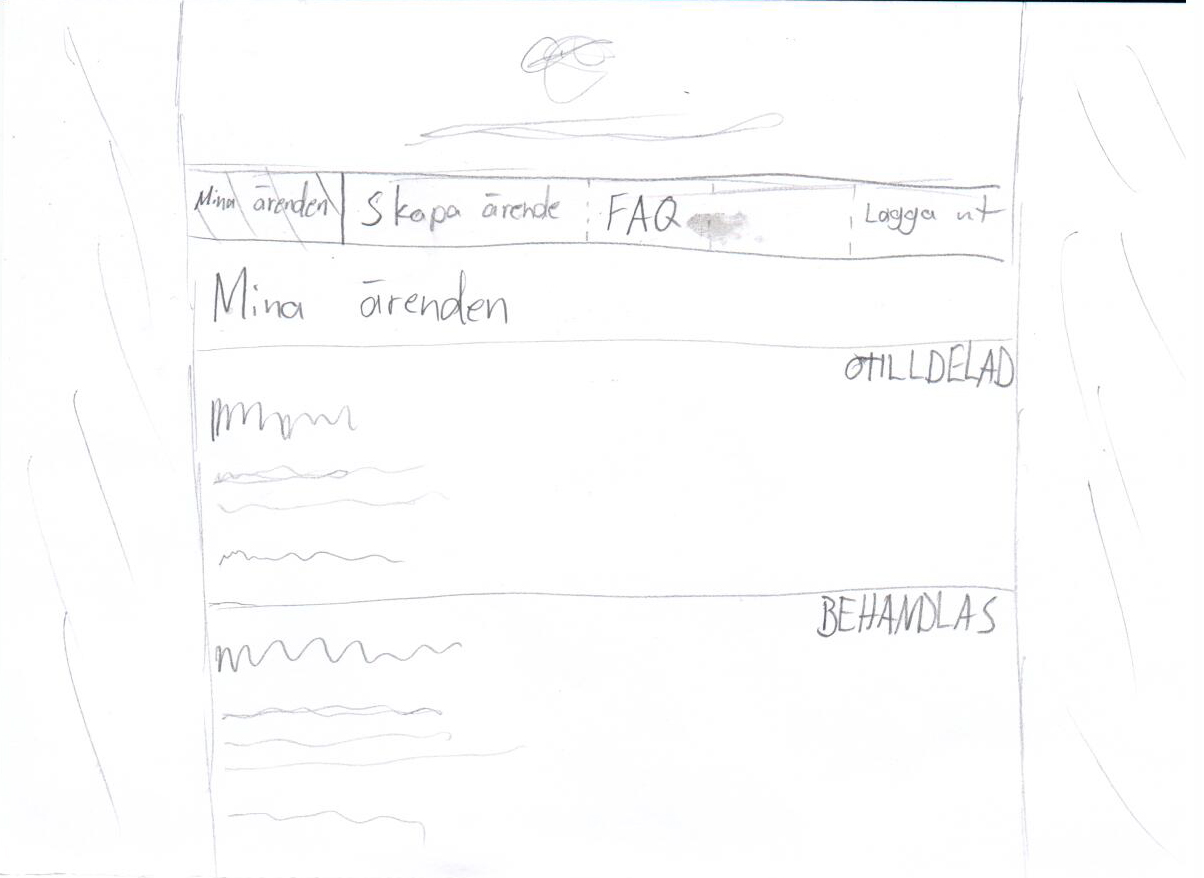 Mina ärenden Skapa ärende FAQ Logga ut
Mina ärenden
OTILLDELAD
BEHANDLAS